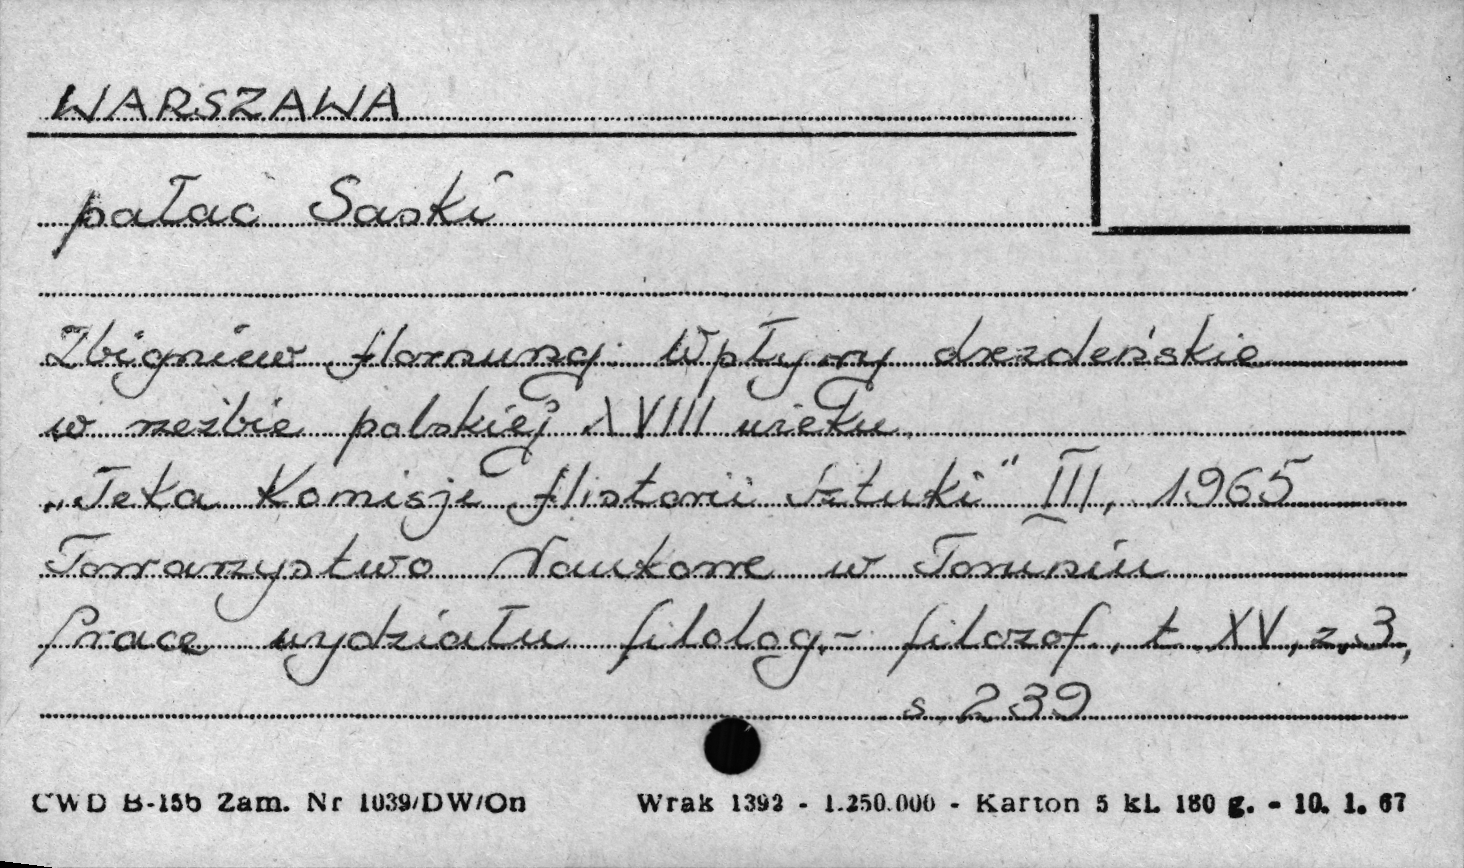 WARSZAWA
pałac Saski
Zbigniew Hornung: Wpływy drezdeńskie
w rzeźbie polskiej XVIII wieku
„Teka Komisji Historii Sztuki" III, 1965
Towarzystwo Naukowe w Toruniu
Prace wydziału filolog.- filozof, t XV, z.3,
s. 239
CWD B-15b Zam. Nr 1039/DW/On Wrak 1392 - 1.250.000 - Karton 5 kl. 180 g. - 10. 1. 67